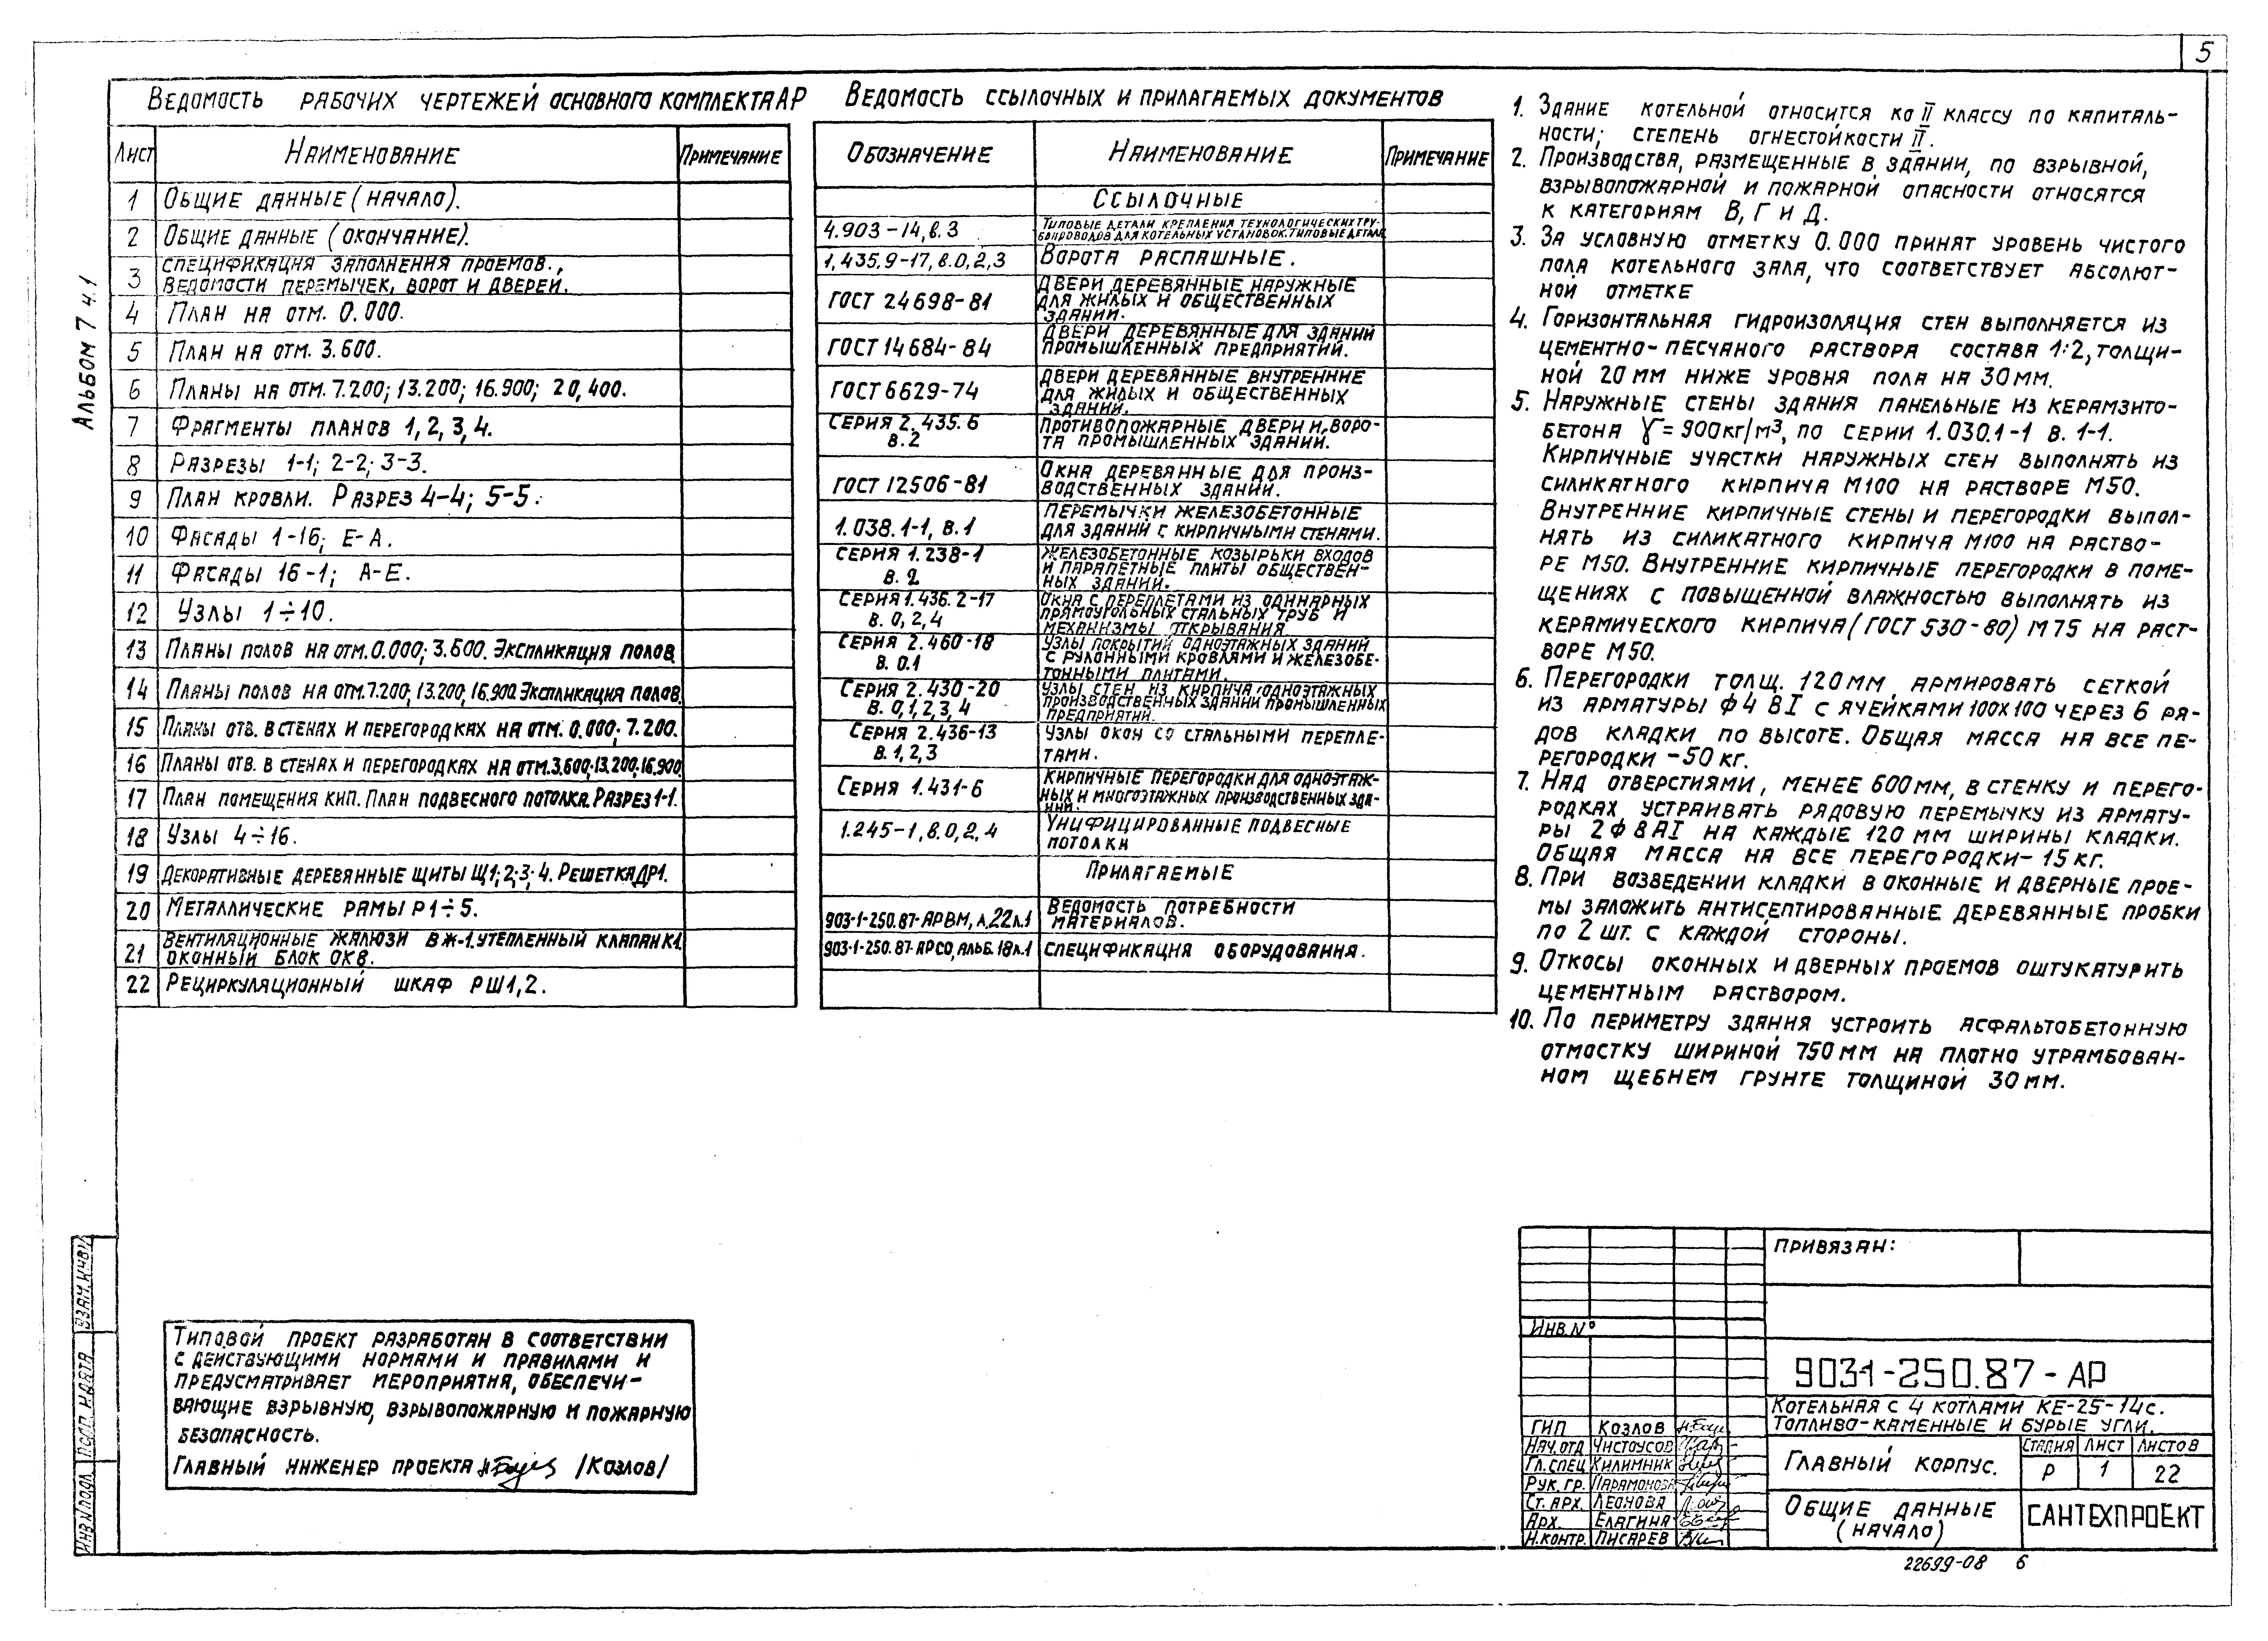 5
Альбом 7 ч.1
Ведомость рабочих чертежей основного комплекта АР
Лист Наименование Примечание
1 Общие данные (начало).
2 Общие данные (окончание).
3 Спецификация заполнения проемов.,
Ведомости перемычек, ворот и дверей.
4 План на отм. 0.000.
5 План на отм. 3.600.
6 Планы на отм. 7.200; 13.200; 16.900; 20,400.
7 Фрагменты планов 1, 2, 3, 4.
8 Разрезы 1-1; 2-2; 3-3.
9 План кровли. Разрез 4-4; 5-5.
10 Фасады 1-16; Е-А.
11 Фасады 16-1; А-Е.
12 Узлы 1÷10.
13 Планы полов на отм. 0.000; 3.600. Экспликация полов.
14 Планы полов на отм. 7.200; 13.200; 16.900. Экспликация полов.
15 Планы отв. в стенах и перегородках на отм. 0.000; 7.200.
16 Планы отв. в стенах и перегородках на отм. 3.600; 13.200; 16.900.
17 План помещения КИП. План подвесного потолка. Разрез 1-1.
18 Узлы 4÷16.
19 Декоративные деревянные щиты Щ1; 2; 3; 4. Решетка ДР1.
20 Металлические рамы Р1÷5.
21 Вентиляционные жалюзи ВЖ-1. Утепленный клапан К1.
Оконный блок ОКВ.
22 Рециркуляционный шкаф РШ1,2.
Ведомость ссылочных и прилагаемых документов
Обозначение Наименование Примечание
Ссылочные
4.903-14, в.3 Типовые детали крепления технологических тру-
бопроводов для котельных установок. Типовые детали
1.435.9-17, в.0,2,3 Ворота распашные.
ГОСТ 24698-81 Двери деревянные наружные
для жилых и общественных
зданий.
ГОСТ 14684-84 Двери деревянные для зданий
промышленных предприятий.
ГОСТ 6629-74 Двери деревянные внутренние
для жилых и общественных
зданий.
Серия 2.435.6 Противопожарные двери и воро-
в.2 та промышленных зданий.
ГОСТ 12506-81 Окна деревянные для произ-
водственных зданий.
1.038.1-1, в.1 Перемычки железобетонные
для зданий с кирпичными стенами.
Серия 1.238-1 Железобетонные козырьки входов
в. 2 и парапетные плиты обществен-
ных зданий.
Серия 1.436.2-17 Окна с переплетами из одинарных
в. 0, 2, 4 прямоугольных стальных труб и
механизмы открывания
Серия 2.460-18 Узлы покрытий одноэтажных зданий
в. 0.1 с рулонными кровлями и железобе-
тонными плитами.
Серия 2.430-20 Узлы стен из кирпича одноэтажных
в. 0,1,2,3,4 производственных зданий промышленных
предприятий.
Серия 2.436-13 Узлы окон со стальными перепле-
в.1,2,3 тами.
Серия 1.431-6 Кирпичные перегородки для одноэтаж-
ных и многоэтажных производственных зда-
ний.
1.245-1, в.0,2,4 Унифицированные подвесные
потолки
Прилагаемые
903-1-250.87-АРВМ, А.22л.1 Ведомость потребности
материалов.
903-1-250.87-АРСО, Альб.18л.1 Спецификация оборудования.
1. Здание котельной относится ко II классу по капиталь-
ности; степень огнестойкости II.
2. Производства, размещенные в здании, по взрывной,
взрывопожарной и пожарной опасности относятся
к категориям В, Г и Д.
3. За условную отметку 0.000 принят уровень чистого
пола котельного зала, что соответствует абсолют-
ной отметке
4. Горизонтальная гидроизоляция стен выполняется из
цементно-песчаного раствора состава 1:2, толщи-
ной 20 мм ниже уровня пола на 30 мм.
5. Наружные стены здания панельные из керамзито-
бетона γ = 900кг/м³, по серии 1.030.1-1 в. 1-1.
Кирпичные участки наружных стен выполнять из
силикатного кирпича М100 на растворе М50.
Внутренние кирпичные стены и перегородки выпол-
нять из силикатного кирпича М100 на раство-
ре М50. Внутренние кирпичные перегородки в поме-
щениях с повышенной влажностью выполнять из
керамического кирпича (ГОСТ 530-80) М75 на раст-
воре М50.
6. Перегородки толщ. 120мм армировать сеткой
из арматуры ф4 ВI с ячейками 100х100 через 6 ря-
дов кладки по высоте. Общая масса на все пе-
регородки -50 кг.
7. Над отверстиями, менее 600мм, в стенку и перего-
родках, устраивать рядовую перемычку из армату-
ры 2ф8АI на каждые 120 мм ширины кладки.
Общая масса на все перегородки- 15кг.
8. При возведении кладки в оконные и дверные прое-
мы заложить антисептированные деревянные пробки
по 2 шт. с каждой стороны.
9. Откосы оконных и дверных проемов оштукатурить
цементным раствором.
10. По периметру здания устроить асфальтобетонную
отмостку шириной 750мм на плотно утрамбован-
ном щебнем грунте толщиной 30мм.
Типовой проект разработан в соответствии
с действующими нормами и правилами и
предусматривает мероприятия, обеспечи-
вающие взрывную, взрывопожарную и пожарную
безопасность.
Главный инженер проекта /Козлов/
Взам.инв.№
Подп. и дата
Инв.№ подл.
Привязан:
Инв. №
903-1-250.87-АР
Котельная с 4 котлами КЕ-25-14с.
Топливо-каменные и бурые угли.
ГИП Козлов
Нач.отд Чистоусов
Гл.спец Килимник
Рук.гр. Парамонова
Ст. арх. Леонова
Арх. Елагина
Н.контр. Писарев
Главный корпус.
Стадия Лист Листов
Р 1 22
Общие данные
(начало)
САНТЕХПРОЕКТ
22699-08 6